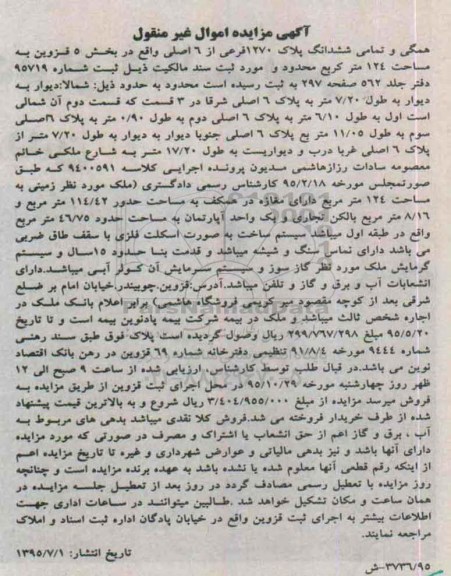 آگهی مزایده اموال غیر منقول
همگی و تمامی ششدانگ پلاک ۱۲۷۰فرعی از ۶ اصلی واقع در بخش ۵ قزوین به
مساحت ۱۲۴ متر کربع محدود و  مورد ثبت سند مالکیت ذیل ثبت شماره ۹۵۷۱۹
دفتر جلد ۵۶۲ صفحه ۲۹۷ به ثبت رسیده است محدود به حدود ذیل: شمالا:دیوار به
دیوار به طول ۷/۲۰ متر به پلاک ۶ اصلی شرقا در ۳ قسمت که قسمت دوم آن شمالی
است اول به طول ۶/۱۰ متر به پلاک ۶ اصلی دوم به طول ۰/۹۰ متر به پلاک ۶اصلی
سوم به طول ۱۱/۰۵ متر بع پلاک ۶ اصلی جنوبا دیوار به دیوار به طول ۷/۲۰ متر از
پلاک ۶ اصلی غربا درب و دیواریست به طول ۱۷/۲۰ متر به شارع ملکی خانم
معصومه سادات رزازهاشمی مدیون پرونده اجرایی کلاسه ۹۴۰۰۵۹۱ که طبق
صورتمجلس مورخه ۹۵/۲/۱۸ کارشناس رسمی دادگستری (ملک مورد نظر زمینی به
مساحت ۱۲۴ متر مربع دارای مغازه در همکف به مساحت حدور ۱۱۴/۴۲ متر مربع و
۸/۱۶ متر مربع بالکن تجاری و یک واحد آپارتمان به مساحت حدود ۴۶/۷۵ متر مربع
واقع در طبقه اول میباشد سیستم ساخت به صورت اسکلت فلزی با سقف طاق ضربی
می باشد دارای نمای سنگ و شیشه میباشد و قدمت بنا حدود ۱۵سال و سیستم
گرمایش ملک مورد نظر گاز سوز و سیستم سرمایش آن کولر آبی میباشد.دارای
انشعابات آب و برق و گاز و تلفن میباشد.آدرس:قزوین.چوبیندر.خیابان امام بر ضلع
شرقی بعد از کوچه مقصود میر کریمی فروشگاه هاشمی) برابر اعلام بانک ملک در
اجاره شخص ثالث میباشد و ملک در بیمه شرکت بیمه نوین بیمه است و تا تاریخ
۹۵/۵/۲۰ مبلغ ۲۹۹/۷۶۷/۲۹۸ ریال وصول گردیده است پلاک فوق طبق سند رهنی
شماره ۹۴۴۴ مورخه ۹۱/۸/۴ تنظیمی دفترخانه شماره ۶۹ قزوین در رهن بانک اقتصاد
نوین می باشد.در قبال طلب توسط کارشناس ارزیابی شده از ساعت ۹ صبح الی ۱۲
ظهر روز چهارشنبه مورخه ۹۵/۱۰/۲۹ در محل اجرای ثبت قزوین از طریق مزایده به
فروش میرسد مزایده از مبلغ ۳/۴۰۴/۹۵۵/۰۰۰ ریال شروع و به بالاترین قیمت پیشنهاد
شده از طرف خریدار فروخته می شد.فروش کلا نقدی میباشد بدهی های مربوط به
آب ، برق و گاز اعم از حق انشعاب یا اشتراک و مصرف در صورتی که مورد مزایده
دارای آنها باشد و نیز بدهی مالیاتی و عوارض شهرداری و غیره تا تاریخ مزایده اعم
از اینکه رقم قطعی آنها معلوم شده یا نشده باشد به عهده برنده مزایده است و چنانچه
روز مزایده با تعطیل رسمی مصادف گردد در روز بعد از تعطیل جلسه مزایده در
همان ساعت و مکان تشکیل خواهد شد .طالبین میتوانند در ساعات اداری جهت
اطلاعات بیشتر به اجرای ثبت قزوین واقع در خیابان پادگان اداره ثبت اسناد و املاک
مراجعه نمایند.
تاریخ انتشار: ۱۳۹۵/۷/۱
۳۷۳۶/۹۵-ش